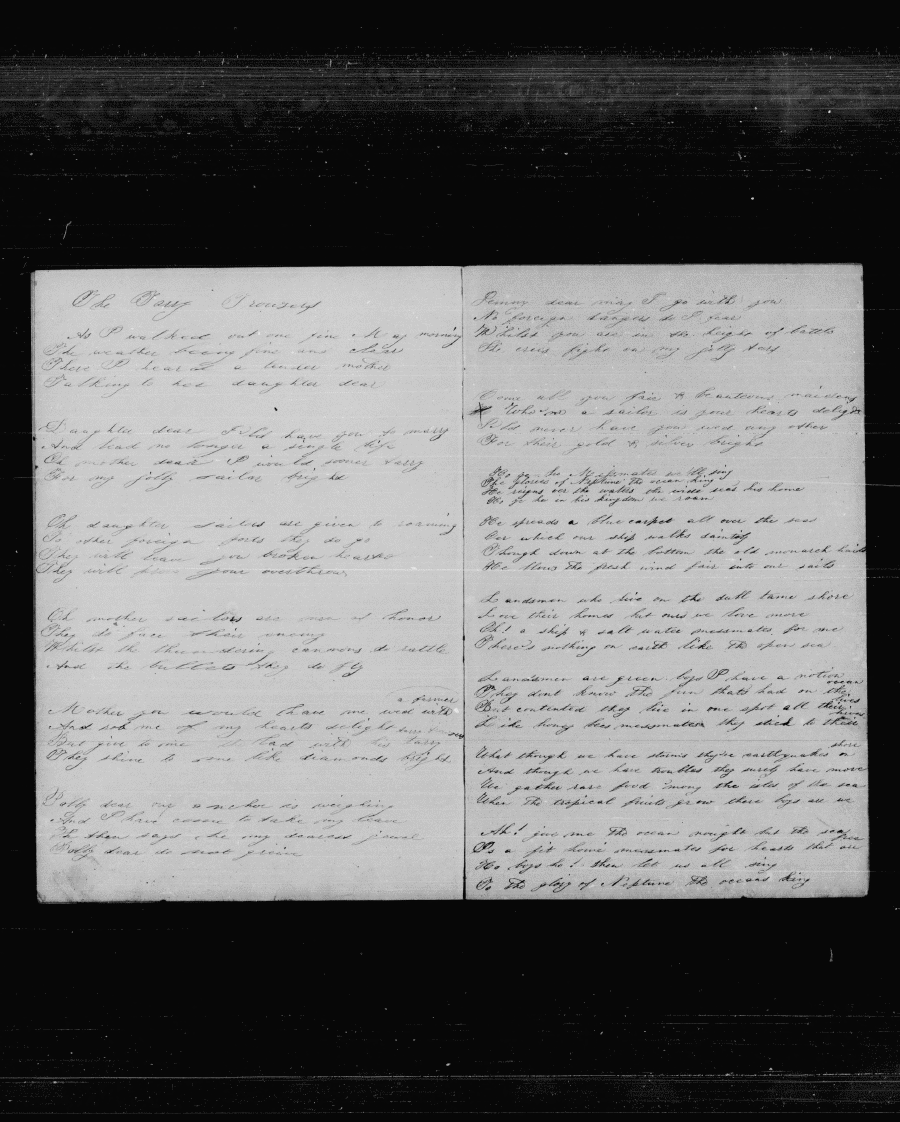 The Tarry Trousers
As I walked out one fine May morning
The weather being fine and
There I heard a tender mother
Talking to her daughter dear
Daughter dear I'll have you to marry
And lead no longer a single life
Oh mother dear I would sooner tarry
For my jolly sailor bright
Oh daughter sailors are given to roaming
To other foreign ports they do go
They will leave you broken hearted
They will prove your overthrow
Oh mother sailors are men of honor
They do face their enemy
Whilst the thundering cannons do rattle
And the bullets they do fly
Mother you would have me wed with a farmer
And rob me of my hearts delight
But give to me the lad with his tarry trousers
They shine to me like diamonds bright
Polly dear my anchor is weighing
And I have come to take my leave
He then says she my dearest jewel
Polly dear do not grieve
Jemmy dear may I go with you
No foreign dangers do I fear
Whilst you are in the height of battle
My jolly tars
Come all you fair & beauteous maidens
Who a sailor is your hearts delight
I'll never have you wed any other
For their gold & silver bright
Ho ho ho Messmates we'll sing
The glories of Neptune the ocean king
He reigns o'er the waters the wide sea's his home
Ho ho ho in his kingdom we roam
He spreads a blue carpet all over the sea
Oer which our ship walks daintily
Though down at the bottom the old monarch hails
He blows the fresh wind fair into our sails
Landsmen who live on the dull tame shore
Love their homes but ours we love more
Oh! a ship & salt water messmates for me
There's nothing on earth like the open sea
Landsmen are green boys I have a notion
They dont know the fun that's had on the ocean
But contented they live in one spot all their lives
Like honey bees messmates they stick to their hives
What though we have storms they've earthquakes on shore
And though we have troubles they surely have more
We gather rare food 'mong the isles of the sea
Where the tropical fruits grow there boys are we
Ah! give me the ocean nought but the sea
Is a fit home messmates for hearts that are free
Ho boys ho! then let us all sing
To the glory of Neptune the oceans king